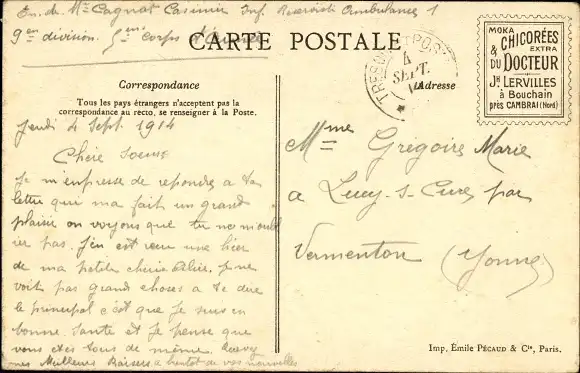 En. de Mr Cagnat Casimir Inf. Reservist Ambulance 1
9en division. 5me corps d'
CARTE POSTALE
MOKA
CHICORÉES
& EXTRA
DU DOCTEUR
JH LERVILLES
à Bouchain
PRÈS CAMBRAI (Nord)
TRESOR ET POSTES
4
SEPT.
14
*
Correspondance
Adresse
Tous les pays étrangers n'acceptent pas la
correspondance au recto, se renseigner à la Poste.
Jeudi 4 Sept. 1914
Chère Soeur
Je m'empresse de repondre a ta
lettre qui ma fait un grand
plaisir on voyons que tu ne m'oubl
ier pas. J'en est recu une hier
de ma petite cherie. Je ne
voit pas grand choses a te dire
le principal c'est que je suis en
bonne santé et je pense que
vous etes tous de même. Recevez
mes Meilleurs Baisers a bientot de vos nouvelles
Mme Grégoire Marie
a Lucy-s-Cure par
Vermenton (Yonne)
Imp. Émile PÉCAUD & Cie, Paris.